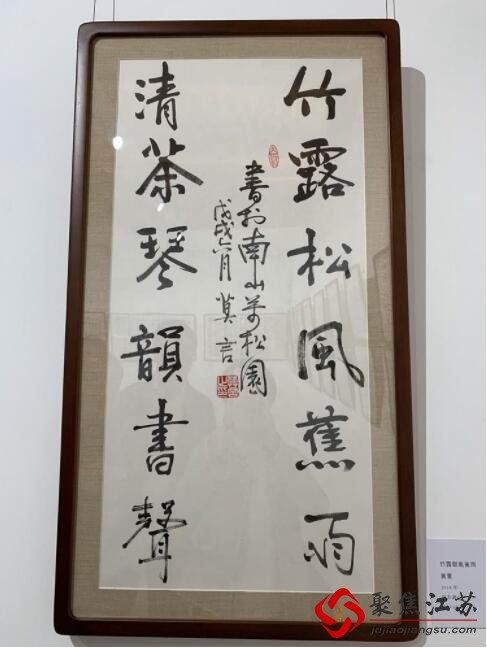 竹露松風蕉雨
書於南山萬松園
戊戌六月 莫言
清茶琴韻書聲
竹露松風蕉雨
莫言
2018年
聚焦江苏
jujiaojiangsu.com